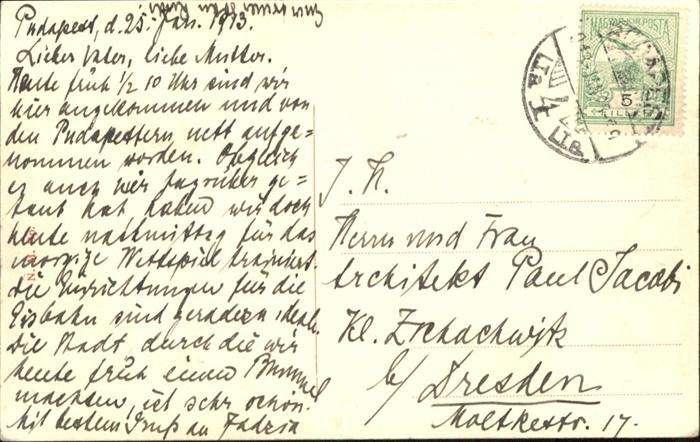 Budapest, d. 25. Jan. 1913.
Lieber Vater, liebe Mutter.
Heute früh ½ 10 Uhr sind wir
hier angekommen und von
den Budapestern nett aufge=
nommen worden. Obgleich
es auch hier tagsüber ge=
taut hat haben wir doch
heute nachmittag für das
morgige Wettspiel trainiert.
Die Einrichtungen für die
Eisbahn sind geradezu ideal.
Die Stadt, durch die wir
heute früh einen Bummel
machten, ist sehr schön.
Mit bestem Gruß an
Euer
MAGYAR KIR. POSTA
5
4
I.T.B.
I.T.B.
Herrn und Frau
Architekt Paul Jacobi
Kl. Zschachwitz
b/ Dresden
Moltkestr. 17.